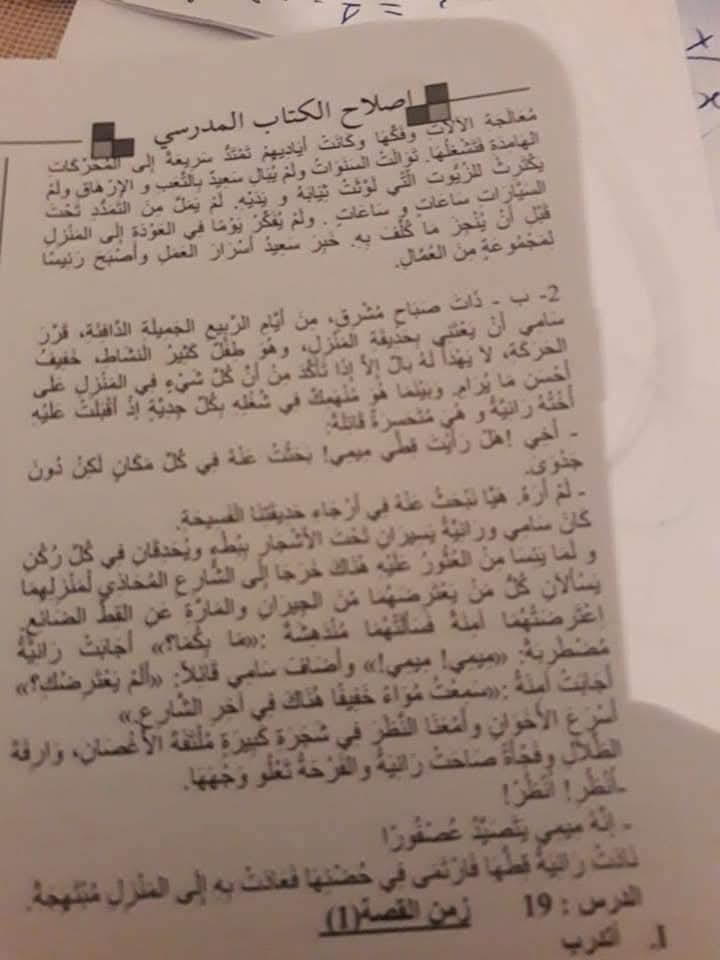 اصلاح الكتاب المدرسي
مُعَالَجَةِ الآلَاتِ وَفَكِّهَا وَكَانَتْ أَيَادِيهِمْ تَمْتَدُّ سَرِيعَةً إِلَى المُحَرِّكَاتِ
الهَامِدَةِ فَتُشْغِلُهَا. تَوَالَتْ السَنَوَاتُ ولَمْ يُبَالِ سَعِيدٌ بِالتَّعَبِ و الإِرْهَاقِ ولَمْ
يَكْتَرِثْ لِلزُّيُوتِ الَّتِي لَوَّثَتْ ثِيَابَهُ و يَدَيْهِ. لَمْ يَمَلَّ مِنَ التَّمَدُّدِ تَحْتَ
السَيَّارَاتِ سَاعَاتٍ و سَاعَاتٍ . ولَمْ يُفَكِّرْ يَوْمًا فِي العَوْدَةِ إِلَى المَنْزِلِ
قَبْلَ أَنْ يُنْجِزَ مَا كُلِّفَ بِهِ. خَبِرَ سَعِيدٌ أَسْرَارَ العَمَلِ وأَصْبَحَ رَئِيسًا
لِمَجْمُوعَةٍ مِنَ العُمَّالِ.
2- ب - ذَاتَ صَبَاحٍ مُشْرِقٍ، مِنْ أَيَّامِ الرَّبِيعِ الجَمِيلَةِ الدَّافِئَةِ، قَرَّرَ
سَامِي أَنْ يَعْتَنِي بِحَدِيقَةِ المَنْزِلِ، وَهُوَ طِفْلٌ كَثِيرُ النَّشَاطِ، خَفِيفُ
الحَرَكَةِ، لَا يَهْدَأُ لَهُ بَالٌ إِلاَّ إِذَا تَأَكَّدَ مِنْ أَنَّ كُلَّ شَيْءٍ فِي المَنْزِلِ عَلَى
أَحْسَنِ مَا يُرَامِ. وَبَيْنَمَا هُوَ مُنْهَمِكٌ فِي شُغْلِهِ بِكُلِّ جِدِيَّةٍ إِذْ أَقْبَلَتْ عَلَيْهِ
أُخْتُهُ رَانِيَّةُ و هِيَ مُتَحَسِّرَةٌ قَائِلَةً:
- أَخِي !هَلْ رَأَيْتَ قِطِّي مِيمِي! بَحَثْتُ عَنْهُ فِي كُلِّ مَكَانٍ لَكِنْ دُونَ
جَدْوَى.
- لَمْ أَرَهُ. هَيَّا نَبْحَثُ عَنْهُ فِي أَرْجَاءِ حَدِيقَتِنَا الفَسِيحَةِ.
كَانَ سَامِي ورَانِيَّةُ يَسِيرَانِ تَحْتَ الأَشْجَارِ بِبُطْءٍ ويُحَدِقَانِ فِي كُلِّ رُكْنٍ
و لَمَا يَئِسَا مِنَ العُثُورِ عَلَيْهِ هُنَاكَ خَرَجَا إِلَى الشَّارِعِ المُحَاذِي لِمَنْزِلِهِمَا
يَسْأَلاَنِ كُلَّ مَنْ يَعْتَرِضُهُمَا مِنَ الجِيرَانِ والمَارَّةِ عَنِ القِطِّ الضَائِعِ.
اعْتَرَضَتْهُمَا آمِنَةُ فَسَأَلَتْهُمَا مُنْدَهِشَةً :«مَا بِكُمَا؟» أَجَابَتْ رَانِيَّةُ
مُضْطَرِبَةً: «مِيمِي! مِيمِي!» وأَضَافَ سَامِي قَائِلاً: «أَلَمْ يَعْتَرِضْكِ؟»
أَجَابَتْ آمِنَةُ :«سَمِعْتُ مُوَاءً خَفِيفًا هُنَاكَ فِي آخِرِ الشَّارِعِ.»
أَسْرَعَ الأَخَوَانِ وأَمْعَنَا النَّظَرَ فِي شَجَرَةٍ كَبِيرَةٍ مُلْتَفَّةِ الأَغْصَانِ، وَارِفَةِ
الظِّلاَلِ وفَجْأَةً صَاحَتْ رَانِيَةُ والفَرْحَةُ تَعْلُو وَجْهَهَا.
-أُنْظُرْ! أُنْظُرْ!
- إِنَّهُ مِيمِي يَتَصَيَّدُ عُصْفُورًا
نَادَتْ رَانِيَةُ قِطَّهَا فَارْتَمَى فِي حُضْنِهَا فَعَادَتْ بِهِ إِلَى المَنْزِلِ مُبْتَهِجَةً.
الدرس : 19 زمن القصة(1)
I. أتدرب